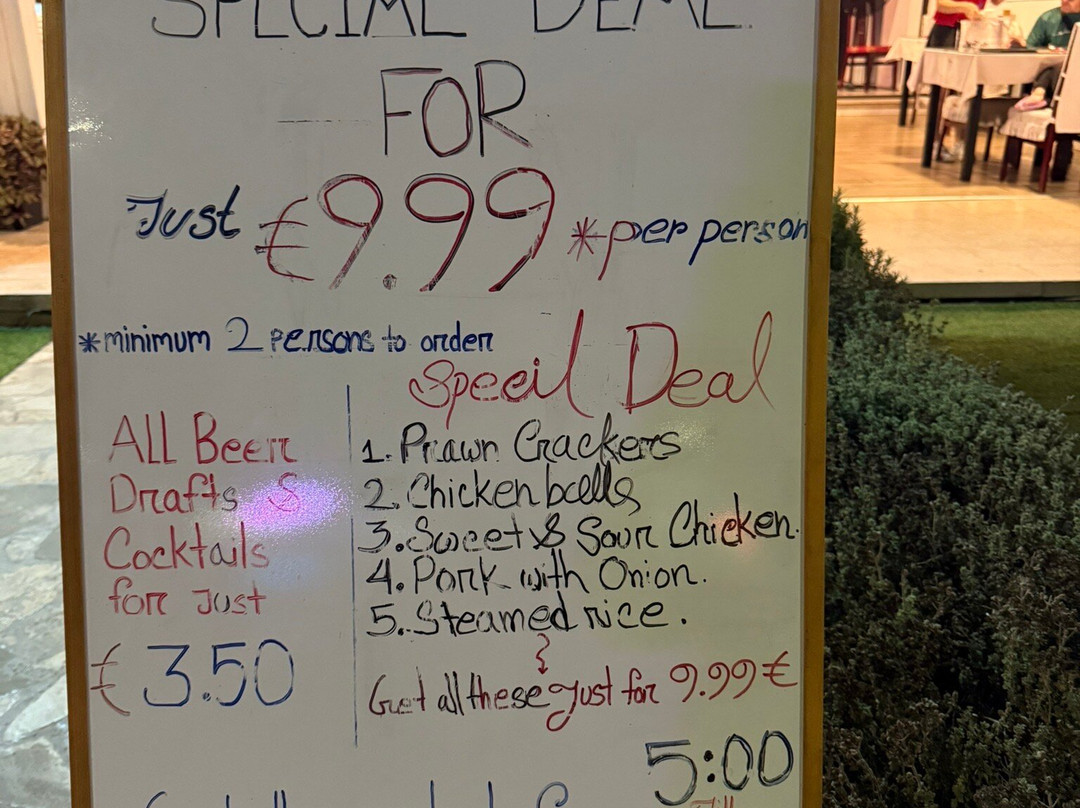 SPECIAL DEAL
FOR
Just €9.99 *per person
*minimum 2 persons to order
Specil Deal
All Beer
Drafts &
Cocktails
for Just
€3.50
1. Prawn Crackers
2. Chicken balls
3. Sweet & Sour Chicken.
4. Pork with Onion.
5. Steamed rice.
Get all these Just for 9.99€
5:00